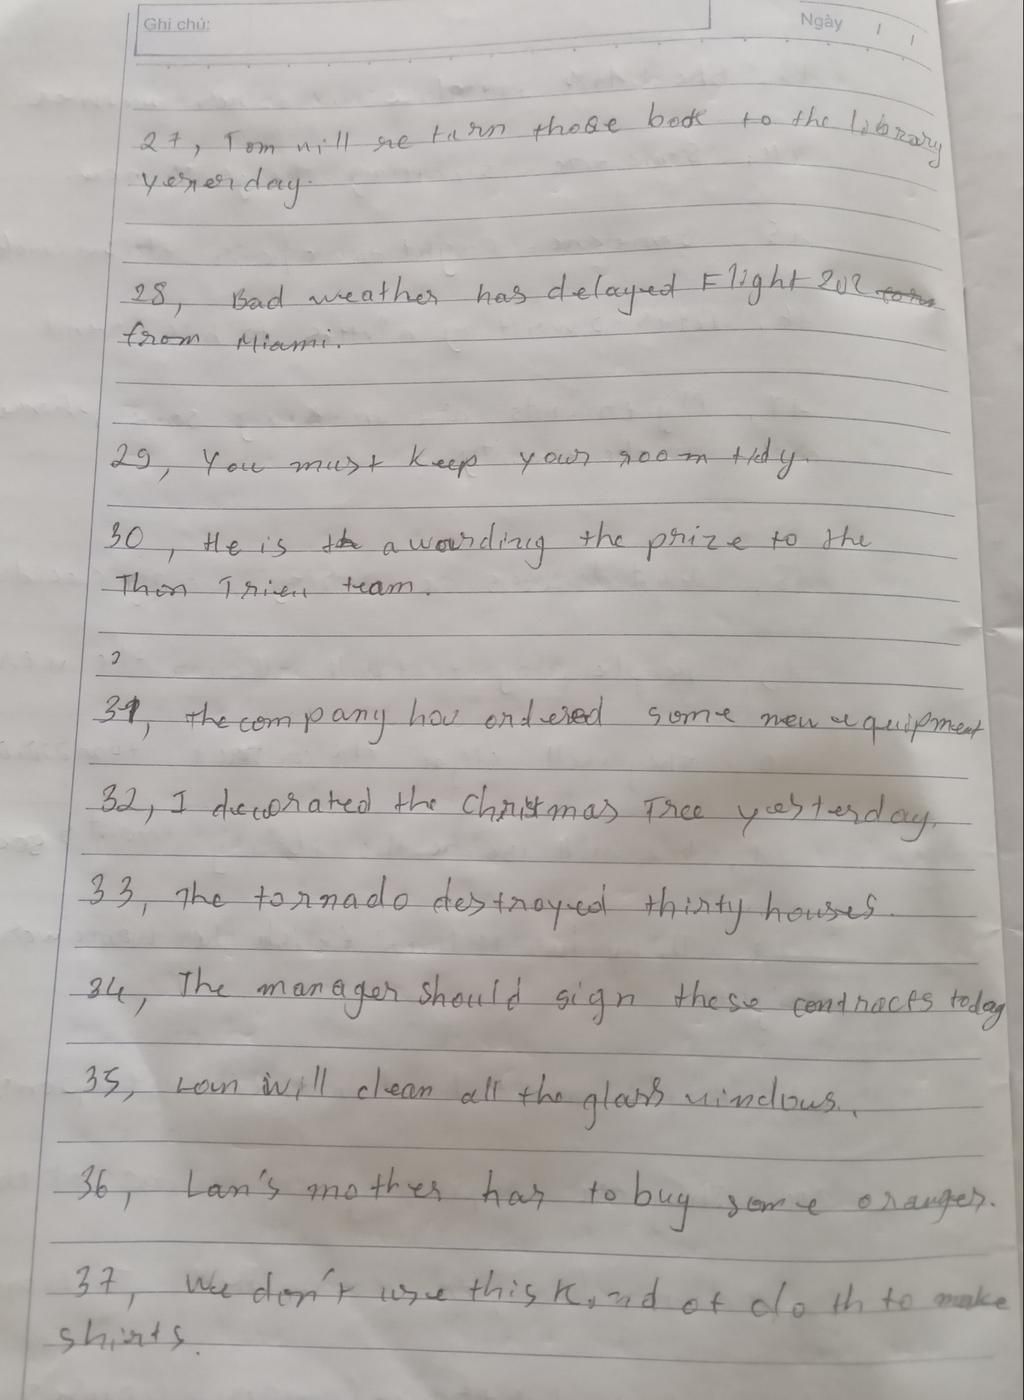 Ghi chú:
Ngày / /
27, Tom will return those book to the library
yesterday.
28, Bad weather has delayed Flight 202
from Miami.
29, You must keep your room tidy.
30, He is awarding the prize to the
Thon Trieu team.
31, the company has ordered some new equipment
32, I decorated the Christmas Tree yesterday.
33, The tornado destroyed thirty houses.
34, The manager should sign these contracts today
35, Lan will clean all the glass windows.
36, Lan's mother has to buy some oranges.
37, We don't use this kind of cloth to make
shirts.